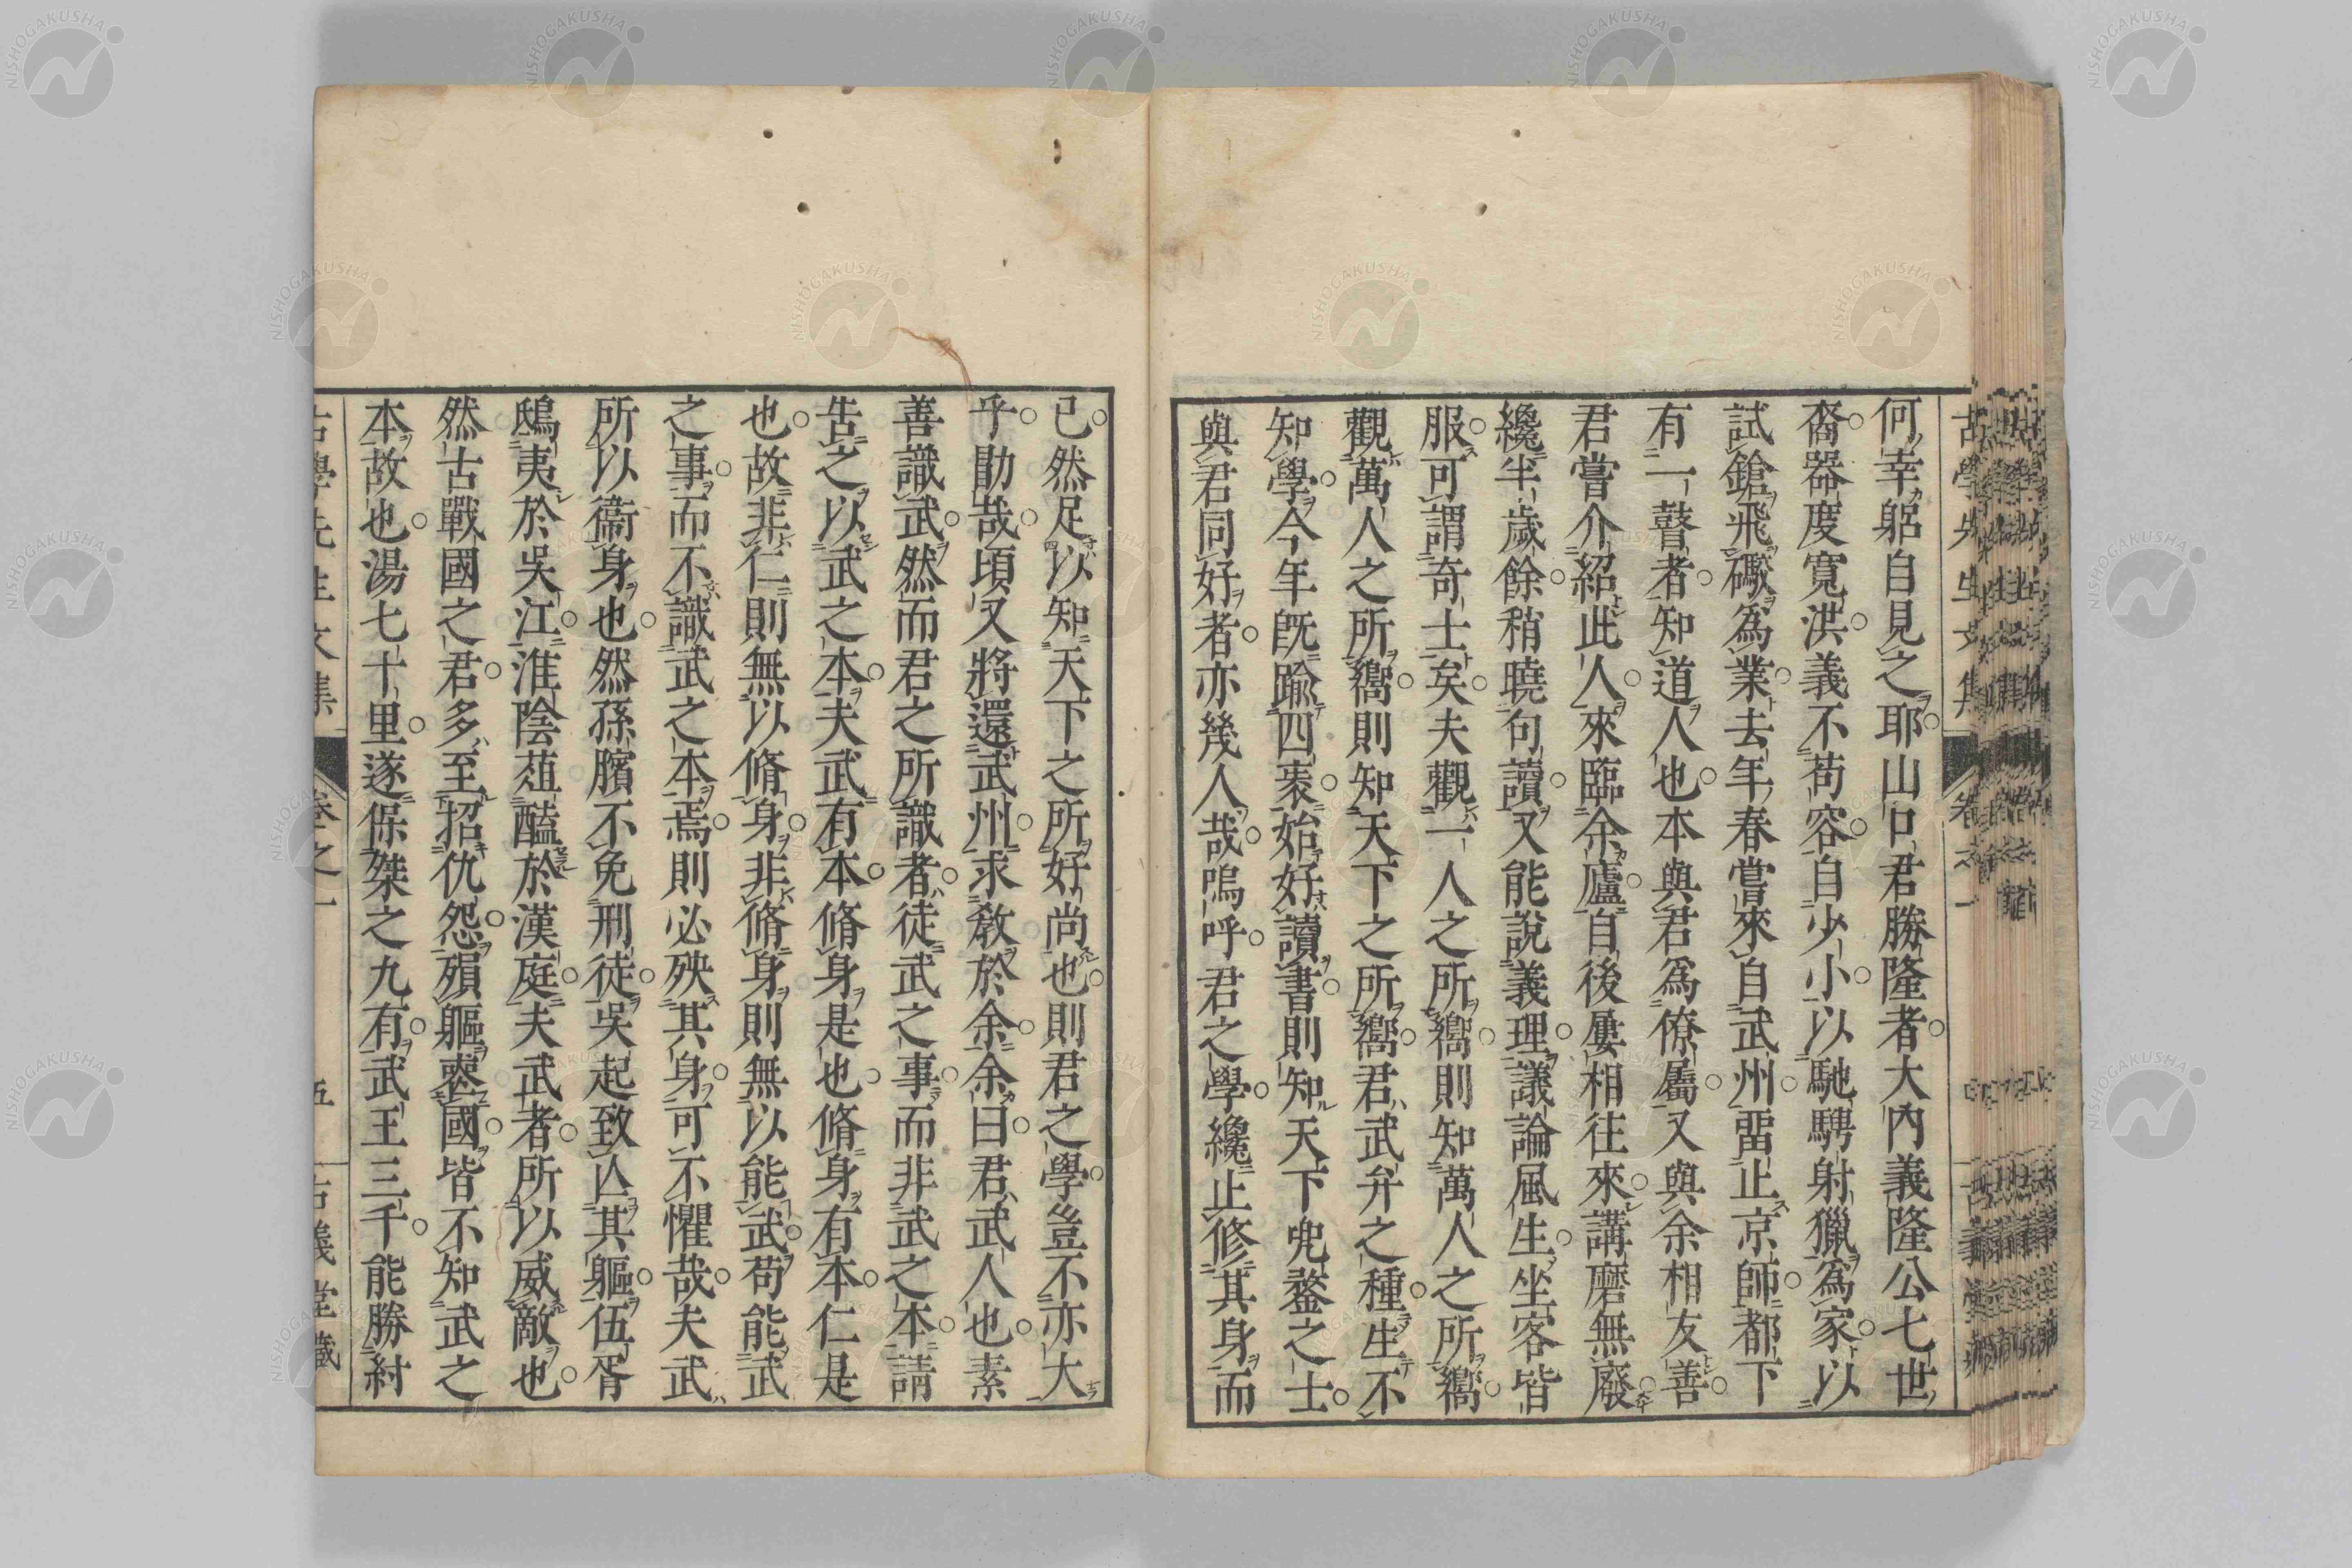 何幸躬自見之耶山口君勝隆者大內義隆公七世
裔器度寬洪義不苟容自少小以馳騁射獵爲家以
試鎗飛礮爲業去年春嘗來自武州畱止京師都下
有一瞽者知道人也本與君爲僚屬又與余相友善
君嘗介紹此人來臨余廬自後屢相往來講磨無廢
纔半歲餘稍曉句讀又能說義理議論風生坐客皆
服可謂奇士矣夫觀一人之所嚮則知萬人之所嚮
觀萬人之所嚮則知天下之所嚮君武弁之種生不
知學今年旣踰四袠始好讀書則知天下兜鍪之士
與君同好者亦幾人哉嗚呼君之學纔止修其身而
已然足以知天下之所好尚也則君之學豈不亦大
乎勖哉頃又將還武州求敎於余余曰君武人也素
善識武然而君之所識者徒武之事而非武之本請
告之以武之本夫武有本脩身是也脩身有本仁是
也故非仁則無以脩身非脩身則無以能武苟能武
之事而不識武之本焉則必殃其身可不懼哉夫武
所以衞身也然孫臏不免刑徒吳起致亾其軀伍胥
鴟夷於吳江淮陰葅醢於漢庭夫武者所以威敵也
然古戰國之君多至招仇怨殞軀喪國皆不知武之
本故也湯七十里遂保桀之九有武王三千能勝紂
古學先生文集 卷之一 五 古義堂藏
古學先生文集 卷之一
NISHOGAKUSHA